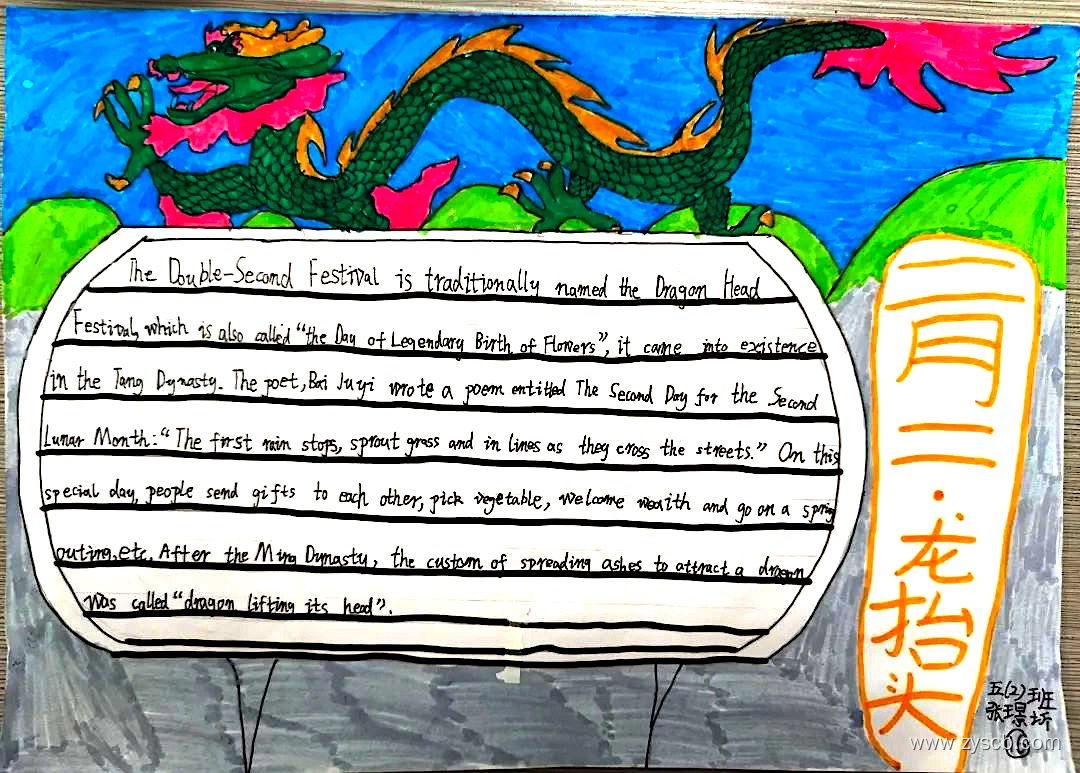 The Double-Second Festival is traditionally named the Dragon Head
Festival, which is also called "the Day of Legendary Birth of Flowers", it came into existence
in the Tang Dynasty. The poet, Bai Juyi wrote a poem entitled The Second Day for the Second
Lunar Month: "The first rain stops, sprout grass and in lines as they cross the streets." On this
special day, people send gifts to each other, pick vegetable, welcome wealth and go on a spring
outing, etc. After the Ming Dynasty, the custom of spreading ashes to attract a dragon
was called "dragon lifting its head".
二月二·龙抬头
五(2)班
张璟圻
www.zyscb.com